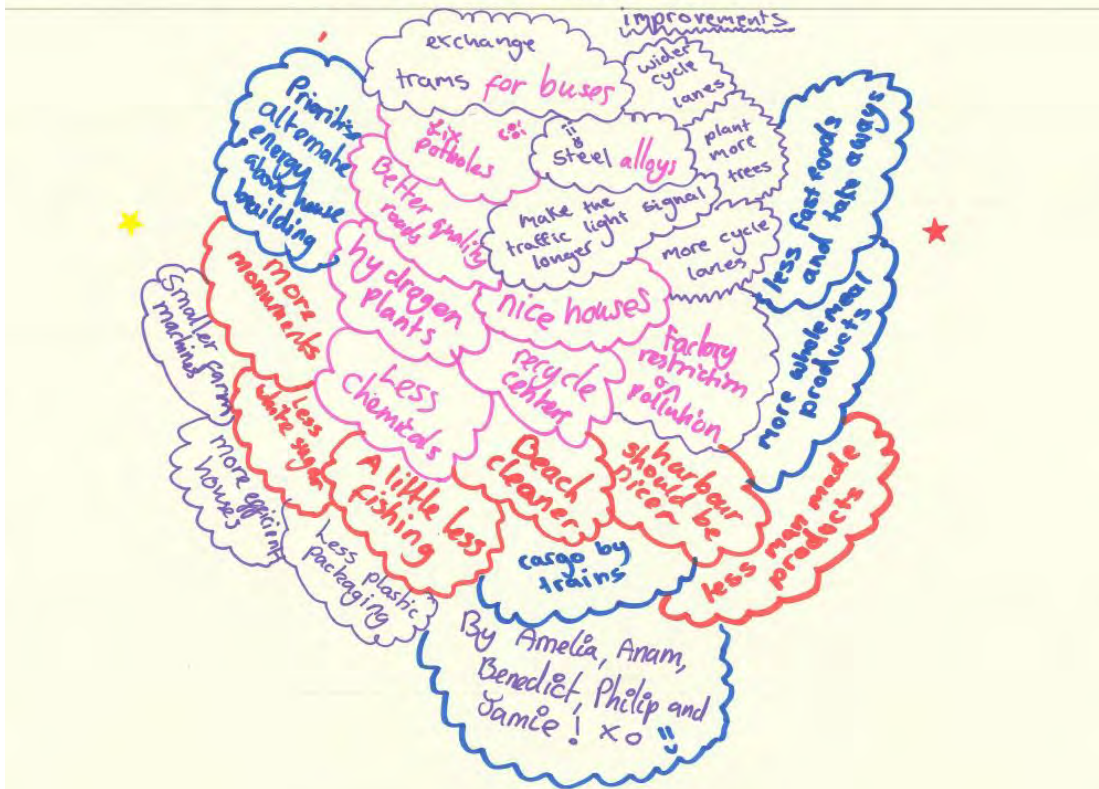 improvements
exchange
trams for buses
wider
cycle
lanes
Prioritise
alternate
energy
above house
building
fix
potholes
steel alloys
plant
more
trees
less fast foods
and take aways
Better quality
roads
make the
traffic light signal
longer
more cycle
lanes
more
monuments
hydrogen
plants
nice houses
Smaller farm
machines
Less
chemicals
recycle
centers
factory
restriction
on
pollution
more whole meal
products
Less
white sugar
more efficient
houses
A little less
fishing
Beach
cleaner
harbour
should be
nicer
less man made
products
Less plastic
packaging
cargo by
trains
By Amelia, Anam,
Benedict, Philip and
Jamie! xo